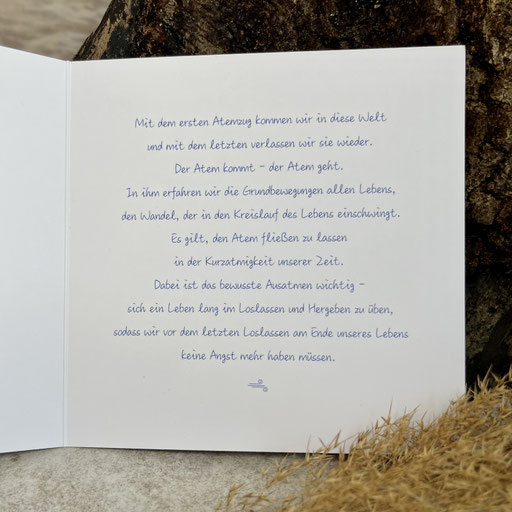 Mit dem ersten Atemzug kommen wir in diese Welt
und mit dem letzten verlassen wir sie wieder.
Der Atem kommt – der Atem geht.
In ihm erfahren wir die Grundbewegungen allen Lebens,
den Wandel, der in den Kreislauf des Lebens einschwingt.
Es gilt, den Atem fließen zu lassen
in der Kurzatmigkeit unserer Zeit.
Dabei ist das bewusste Ausatmen wichtig –
sich ein Leben lang im Loslassen und Hergeben zu üben,
sodass wir vor dem letzten Loslassen am Ende unseres Lebens
keine Angst mehr haben müssen.